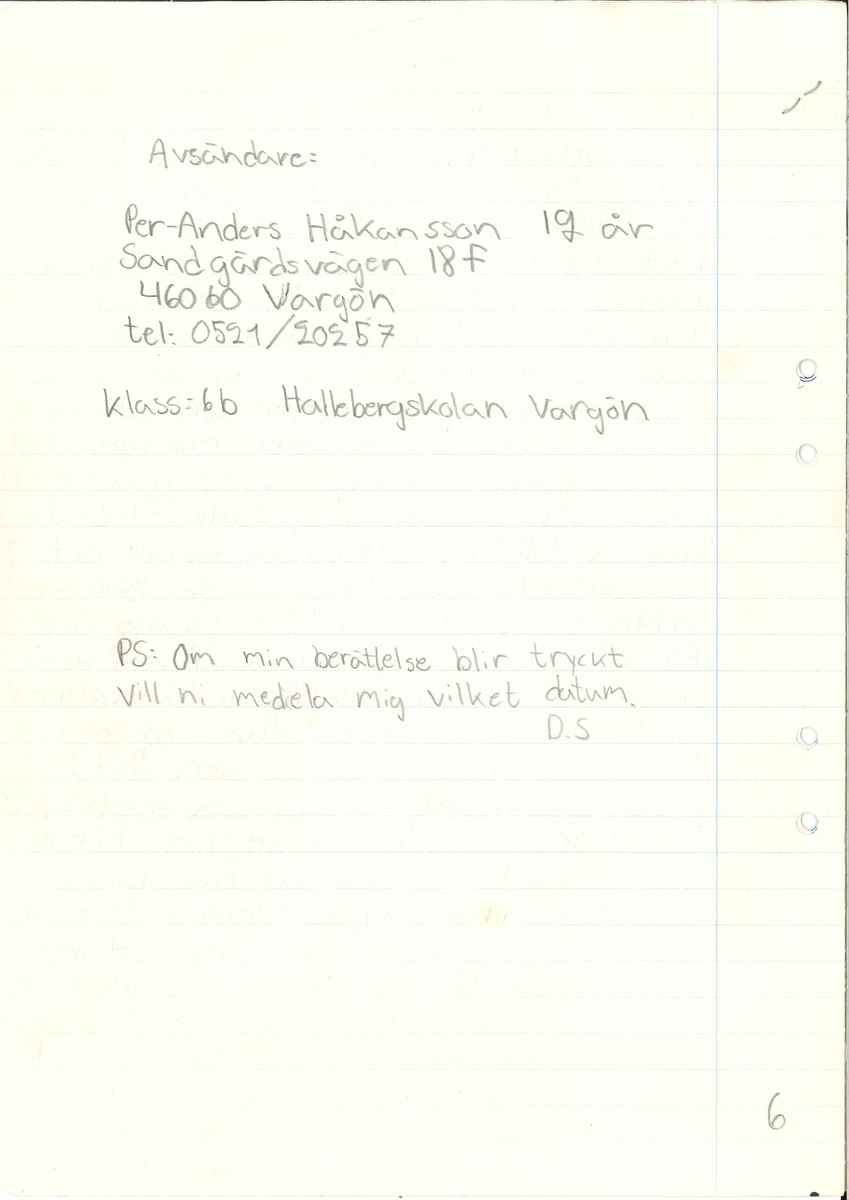 Avsändare:
Per-Anders Håkansson 12 år
Sandgärdsvägen 18f
46060 Vargön
tel: 0521/20257
Klass: 6b Hallebergskolan Vargön
PS: Om min berättelse blir tryckt
Vill ni medela mig vilket datum.
D.S
6